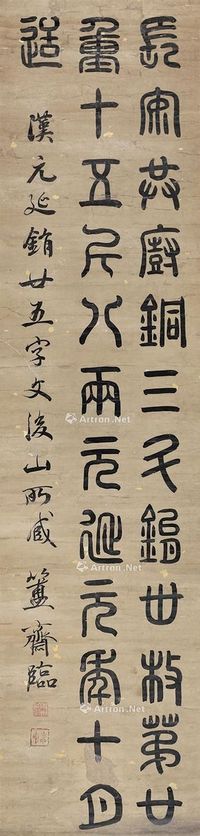 長安共廚銅三斗鋗廿枚第廿
重十五斤八兩元延元年十月
造
漢元延鋗廿五字文後山所藏
簠齋臨
Artron.Net
Artron.Net
Artron.Net
Artron.Net